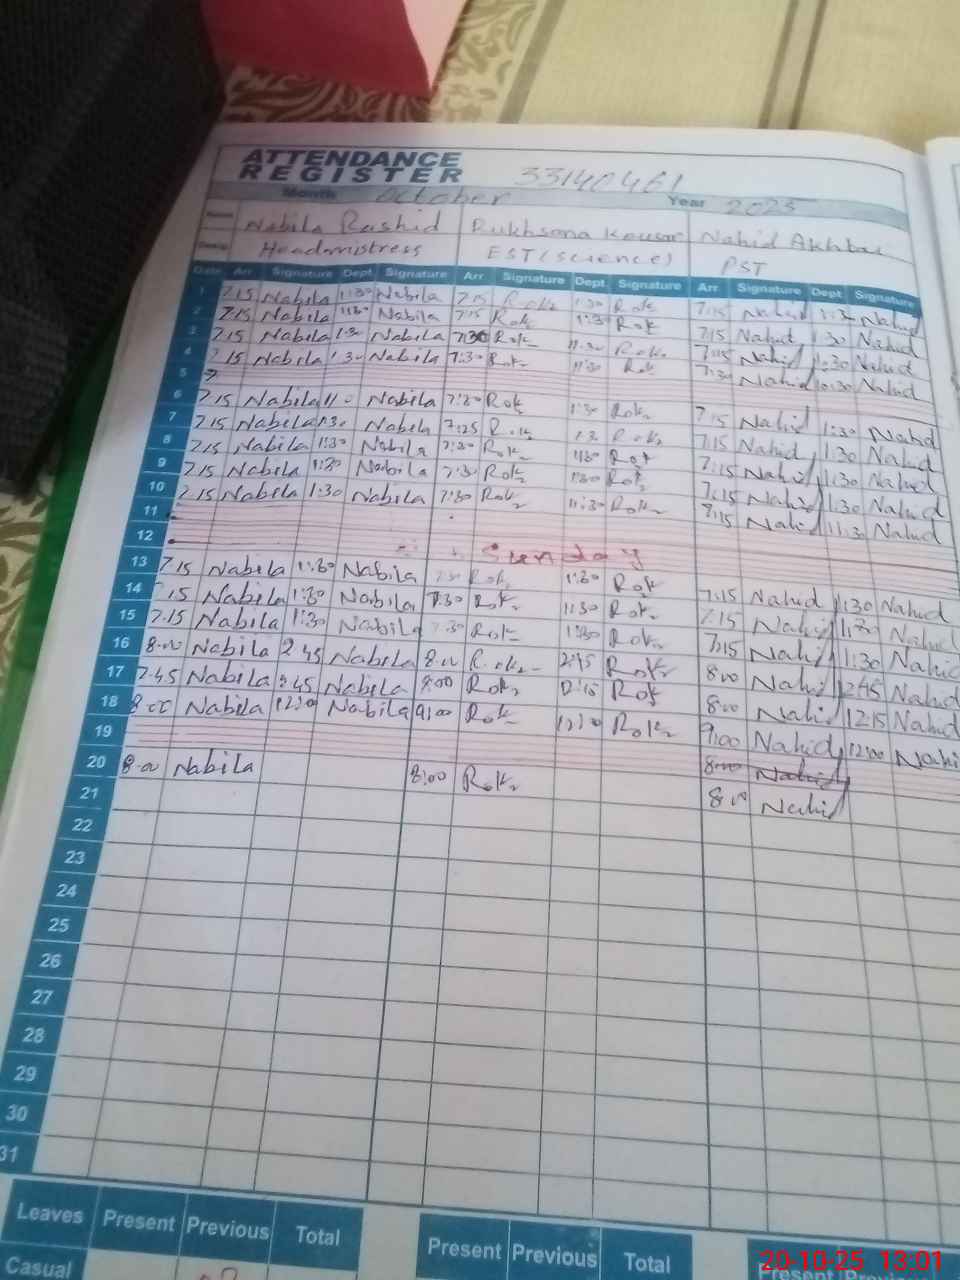 ATTENDANCE
REGISTER 33140461
Month October Year 2025
Name Nabila Rashid Rukhsana Kousar Nahid Akhtar
Desig: Headmistress EST (science) PST
Date Arr Signature Dept Signature Arr Signature Dept Signature Arr Signature Dept Signature
1 7:15 Nabila 1:30 Nabila 7:15 Rok 1:30 Rok 7:15 Nahid 1:30 Nahid
2 7:15 Nabila 1:30 Nabila 7:15 Rok 1:30 Rok 7:15 Nahid 1:30 Nahid
3 7:15 Nabila 1:30 Nabila 7:30 Rok 11:30 Rok 7:15 Nahid 1:30 Nahid
4 7:15 Nabila 1:30 Nabila 7:30 Rok 11:30 Rok 7:30 Nahid Nahid
5
6 7:15 Nabila Nabila 7:30 Rok 1:30 Rok 7:15 Nahid 1:30 Nahid
7 7:15 Nabila 1:30 Nabila 7:25 Rok 1:30 Rok 7:15 Nahid 1:30 Nahid
8 7:15 Nabila 1:30 Nabila 7:30 Rok 1:30 Rok 7:15 Nahid 1:30 Nahid
9 7:15 Nabila 1:30 Nabila 7:30 Rok 1:30 Rok 7:15 Nahid 1:30 Nahid
10 7:15 Nabila 1:30 Nabila 7:30 Rok 11:30 Rok 7:15 Nahid 11:30 Nahid
11
12 Sunday
13 7:15 Nabila 11:30 Nabila 7:30 Rok 1:30 Rok 7:15 Nahid 1:30 Nahid
14 7:15 Nabila 1:30 Nabila 7:30 Rok 11:30 Rok 7:15 Nahid 1:30 Nahid
15 7:15 Nabila 1:30 Nabila 7:30 Rok 1:30 Rok 7:15 Nahid 1:30 Nahid
16 8:00 Nabila 2:45 Nabila 8:00 Rok 2:45 Rok 8:00 Nahid 2:45 Nahid
17 7:45 Nabila Nabila 8:00 Rok 12:15 Rok 8:00 Nahid 12:15 Nahid
18 8:00 Nabila 12:00 Nabila 9:00 Rok Rok 9:00 Nahid 12:00 Nahid
19 8:00 Nahid
20 8:00 Nabila 8:00 Rok 8:00 Nahid
21
22
23
24
25
26
27
28
29
30
31
Leaves Present Previous Total Present Previous Total Present
Casual
20-10-25 13:01